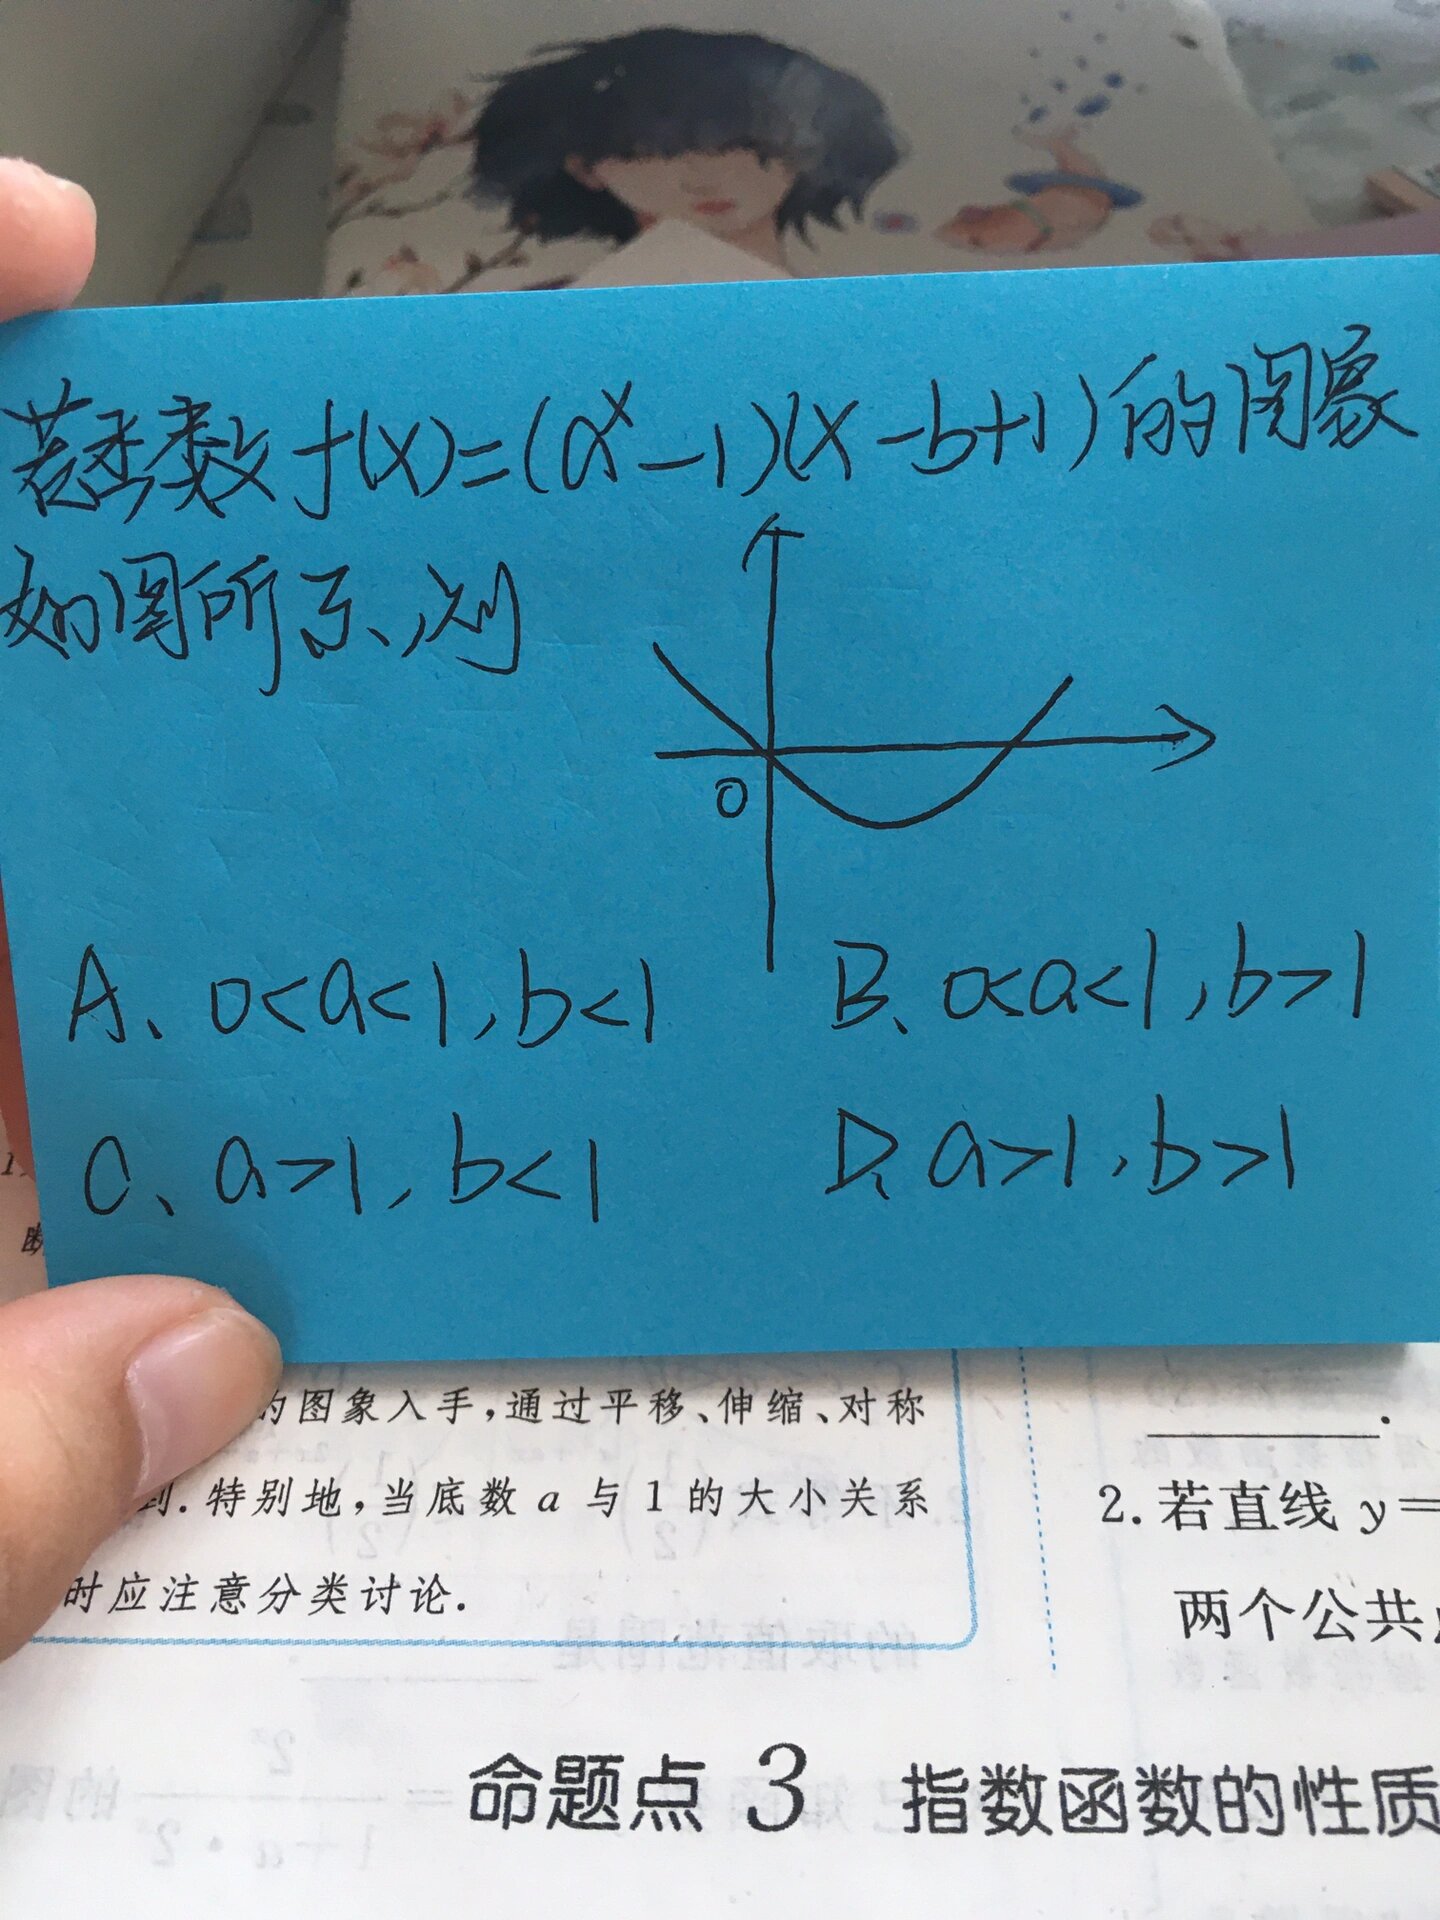 若函数f(x)=(aˣ-1)(x-b+1)的图象
如图所示,则
0
A、0<a<1,b<1
B、0<a<1,b>1
C、a>1,b<1
D、a>1,b>1
的图象入手,通过平移、伸缩、对称
到.特别地,当底数a与1的大小关系
时应注意分类讨论.
.
2.若直线y=
两个公共
命题点3 指数函数的性质